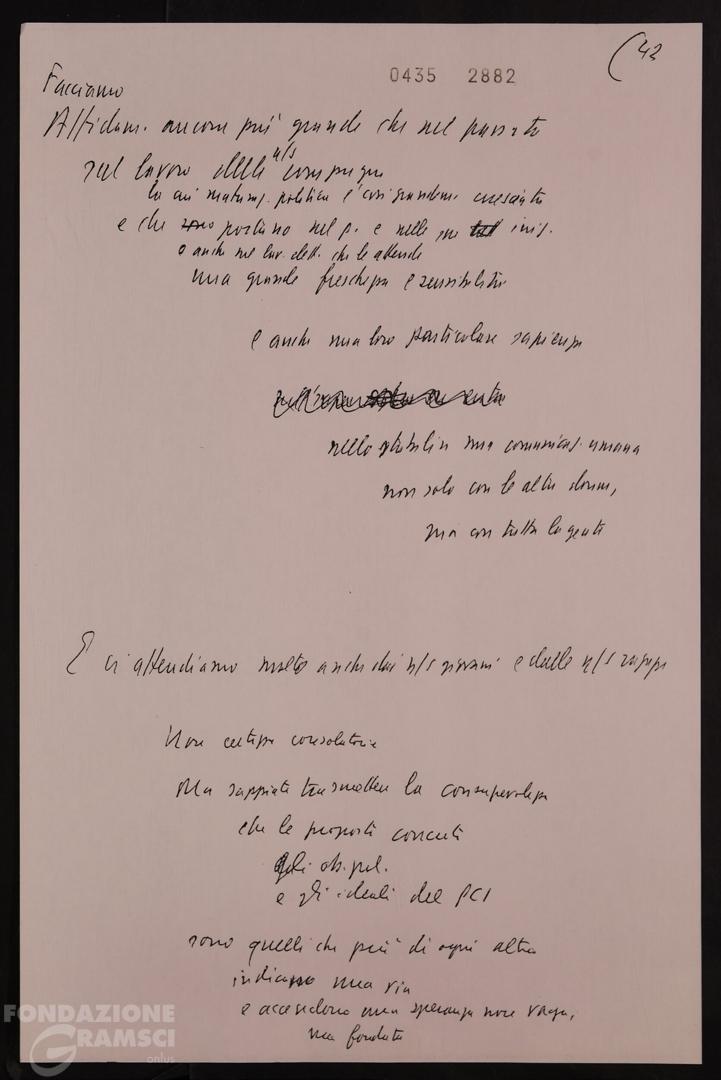 (42
0435 2882
Facciamo
Affidam. ancora più grande che nel passato
sul lavoro delle n/s compagne
la cui maturaz. politica è così grandem. cresciuta
e che sono portano nel p. e nelle sue iniz.
e anche nel lav. elett. che le attende
una grande freschezza e sensibilità
e anche una loro particolare sapienza
nello stabilire una comunicaz. umana
non solo con le altre donne,
ma con tutta la gente
E ci attendiamo molto anche dai n/s giovani e dalle n/s ragazze
Non certezze consolatorie
Ma sappiate trasmettere la consapevolezza
che le proposte concrete
gli ob. pol.
e gli ideali del PCI
sono quelli che più di ogni altro
indicano una via
e accendono una speranza non vaga,
ma fondata
FONDAZIONE
GRAMSCI
onlus